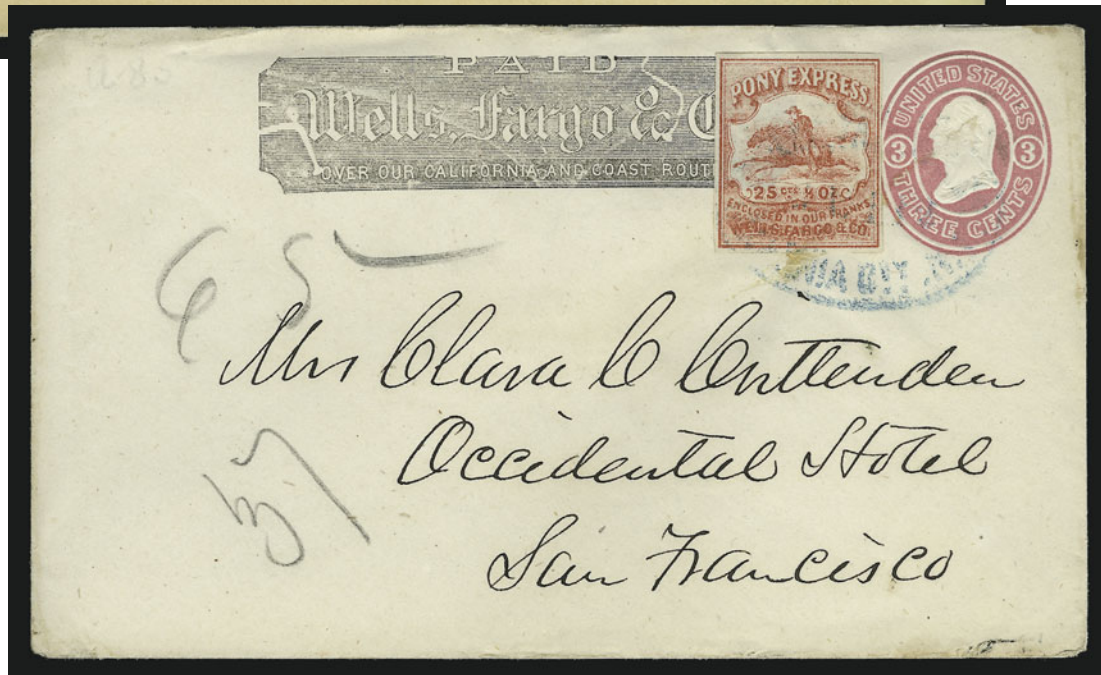 PAID
Wells, Fargo & C
OVER OUR CALIFORNIA AND COAST ROUT
PONY EXPRESS.
25 CTS ½ OZ.
ENCLOSED IN OUR FRANKS
WELLS, FARGO & CO.
UNITED STATES
3 3
THREE CENTS
Mrs Clara C Crittenden
Occidental Hotel
San Francisco